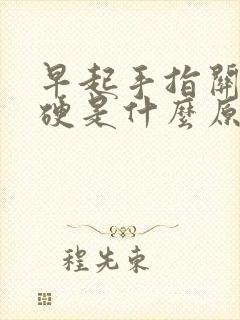 早起手指關
硬是什麼原
程先東